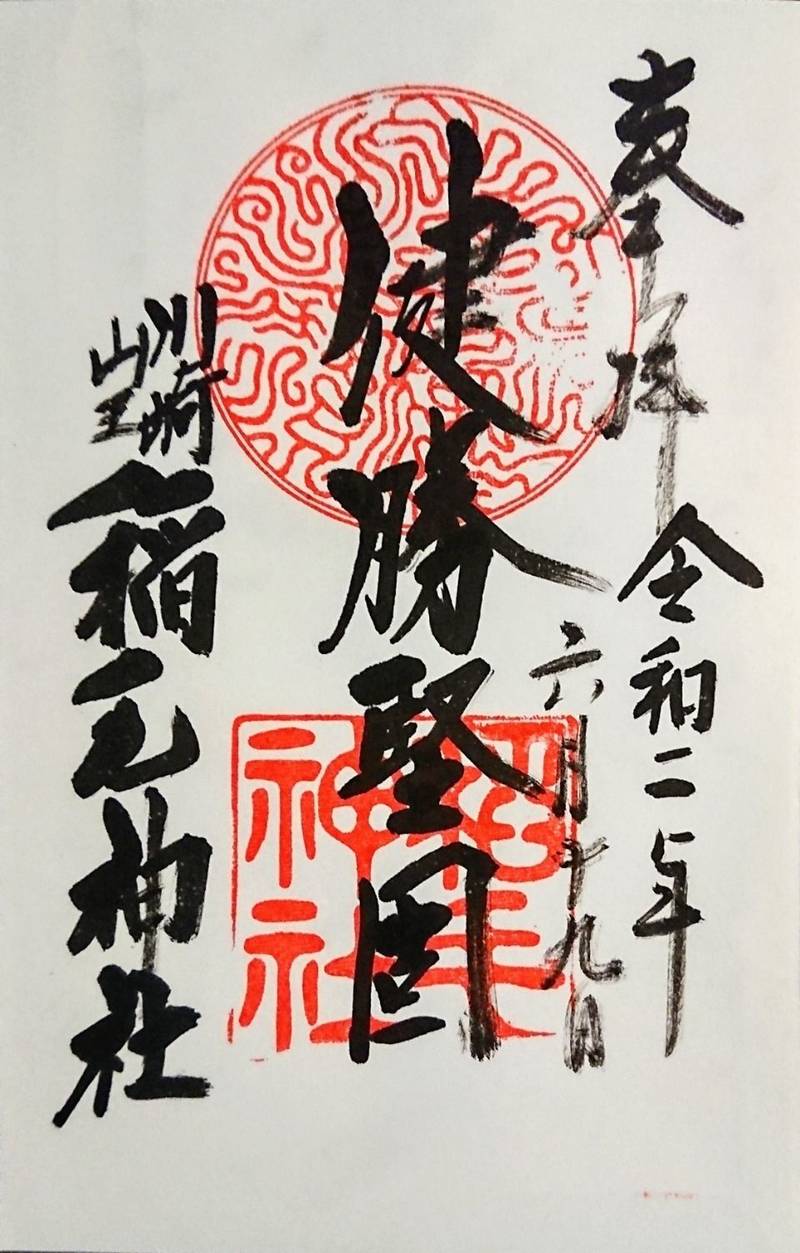 奉拝
令和二年
六月十九日
健勝堅固
川崎
山王
稲毛神社
稲毛
神社